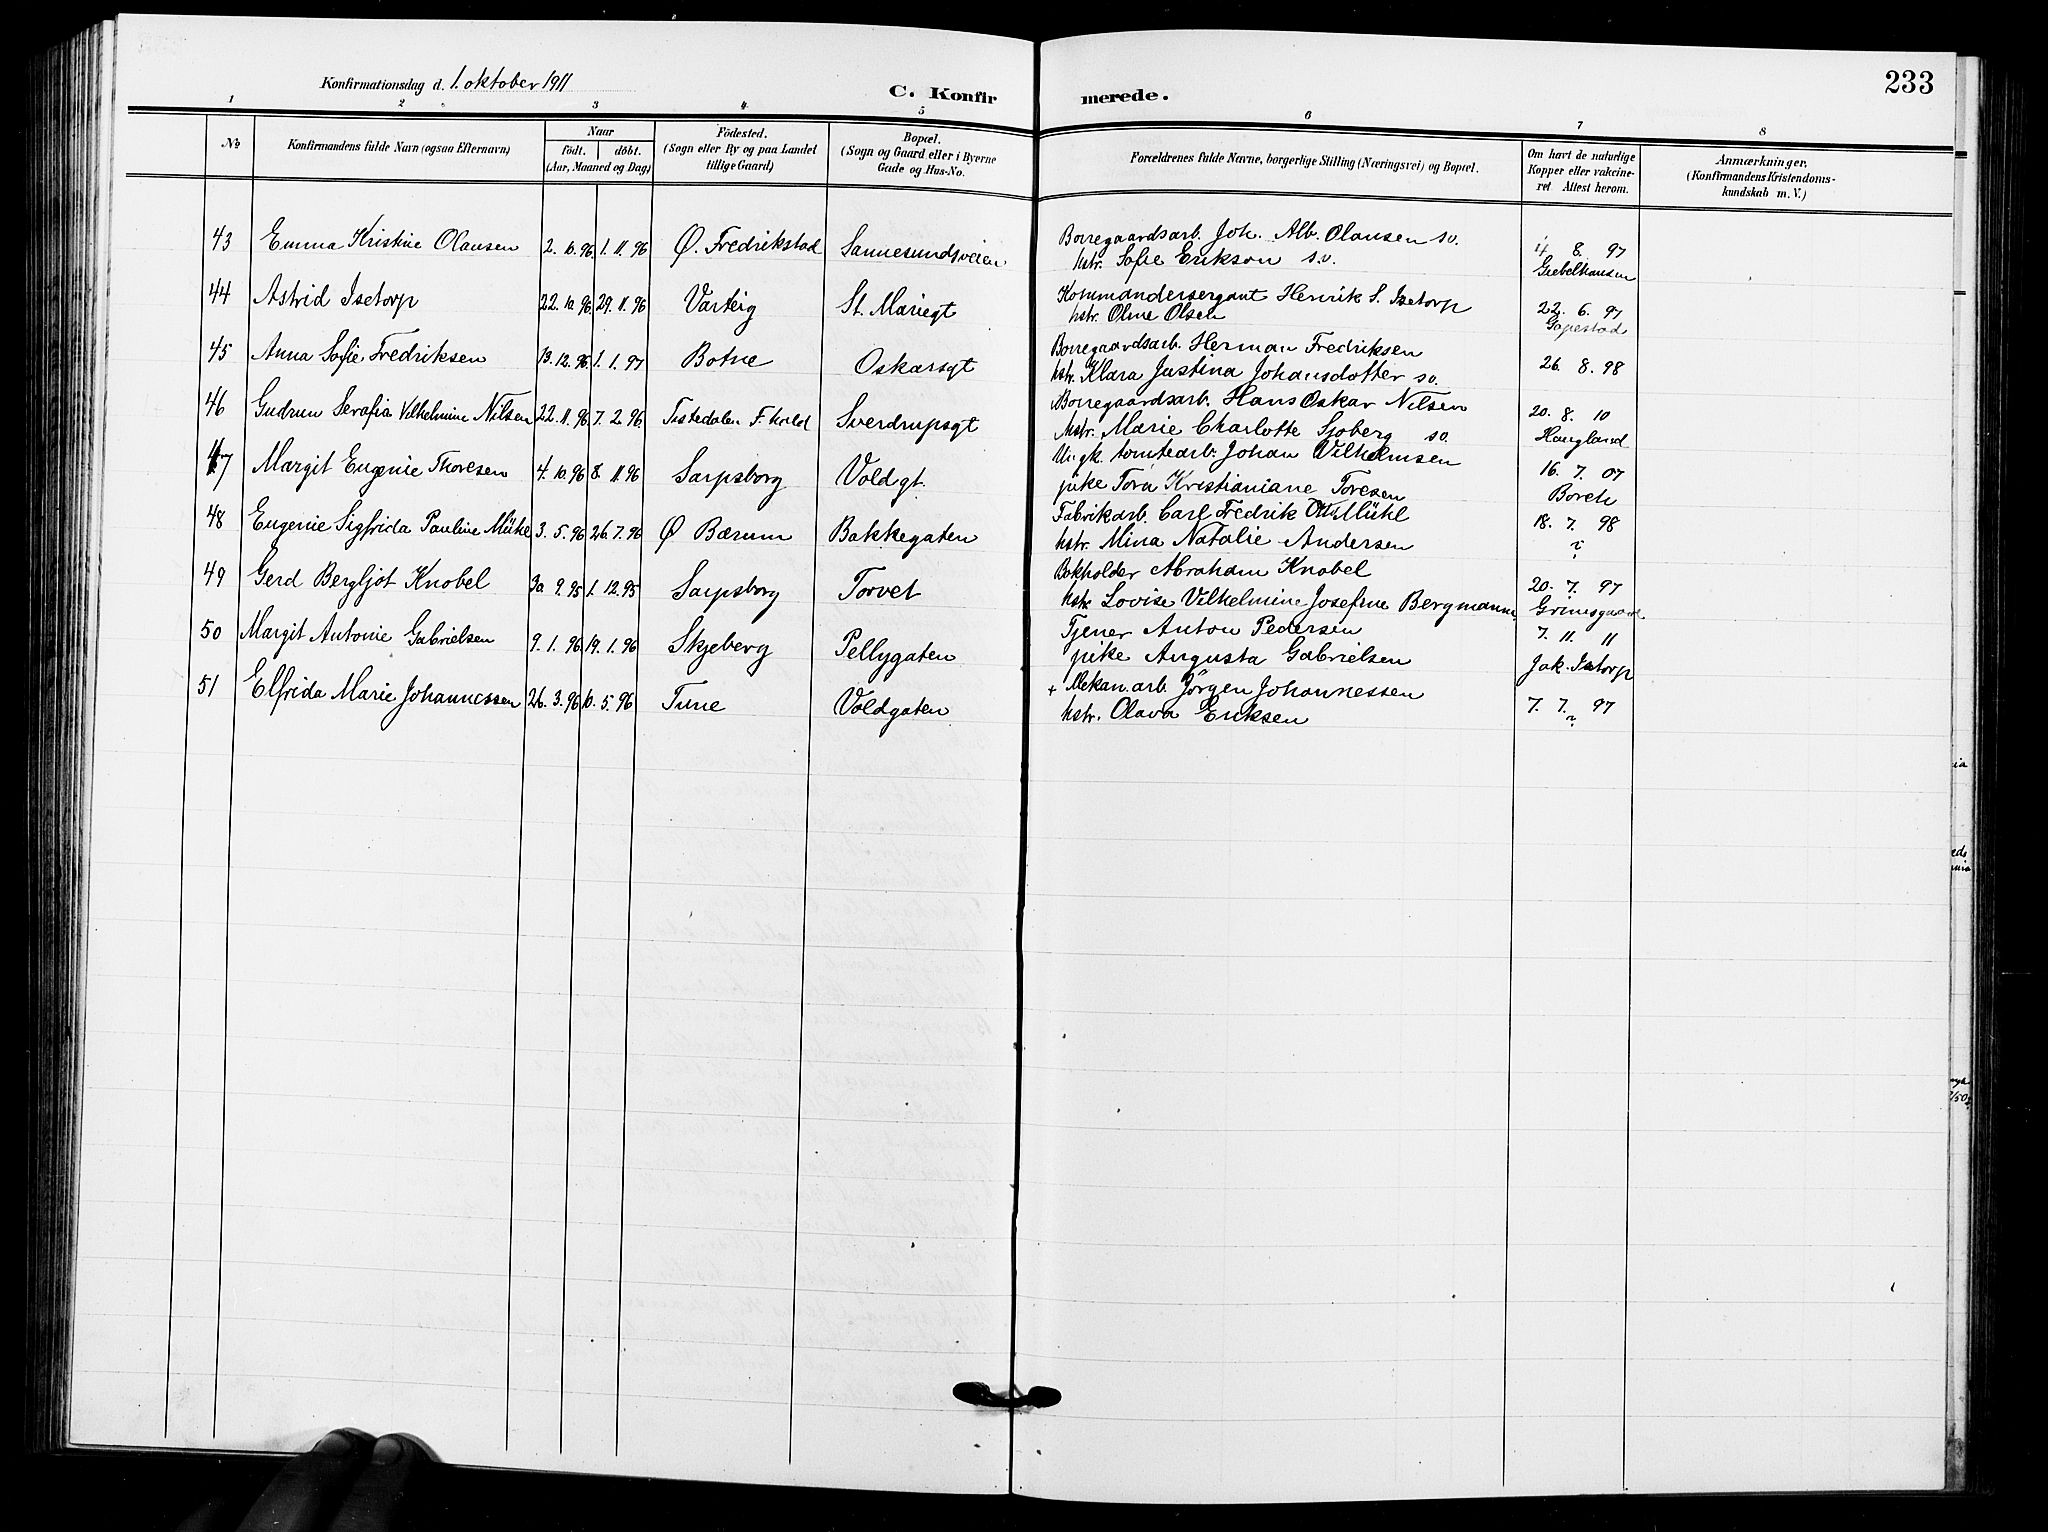 Konfirmationsdag d. 1. oktober 1911
C. Konfir merede. 233
1 2 3 4 5 6 7 8
No
Konfirmandens fulde Navn (ogsaa Efternavn)
Naar
födt. döbt.
(Aar, Maaned og Dag)
Födested.
(Sogn eller By og paa Landet
tillige Gaard)
Bopæl.
(Sogn og Gaard eller i Byerne
Gade og Hus-No.
Forældrenes fulde Navne, borgerlige Stilling (Næringsvei) og Bopæl.
Om havt de naturlige
Kopper eller vakcine-
ret Attest herom.
Anmærkninger.
(Konfirmandens Kristendoms-
kundskab m. V.)
43 Emma Kristine Olausen 2. 10. 96 1. 11. 96 Ø. Fredrikstad Sannesundsveien Borregaardsarb. Joh. Alb. Olausen sv. 4. 8. 97
hstr. Sofie Erikson s.v. Giebelhausen
44 Astrid Isetorp 22. 10. 96 29. 11. 96 Varteig St. Mariegt Kommandersergant Henrik S. Isetorp 22. 6. 97
hstr. Oline Olsen Gopestad
45 Anna Sofie Fredriksen 13. 12. 96 1. 1. 97 Botne Oskarsgt Borregaardsarb. Herman Fredriksen 26. 8. 98
hstr. Klara Justina Johansdotter sv.
46 Gudrun Serafia Vilhelmine Nilsen 22. 11. 96 7. 2. 96 Tistedalen F.hald Sverdrupsgt Borregaardsarb. Hans Oskar Nilsen 20. 8. 10
hstr. Marie Charlotte Sjoberg sv. Haugland
47 Margit Eugenie Thoresen 4. 10. 96 8. 11. 96 Sarpsborg Voldgt. Ungk. tomtearb. Johan Vilhelmsen 16. 7. 07
pike Tora Kristianiane Toresen Borch
48 Eugenie Sigfrida Pauline Mühl 3. 5. 96 26. 7. 96 Ø Bærum Bakkegaten Fabrikarb. Carl Fredrik Otto Mühl 18. 7. 98
hstr. Mina Natalie Andersen ?
49 Gerd Bergljot Knobel 30. 9. 95 1. 12. 95 Sarpsborg Torvet Bokholder Abraham Knobel 20. 7. 97
hstr. Lovise Vilhelmine Josefine Bergmann Grimsgaard
50 Margit Antonie Gabrielsen 9. 1. 96 19. 1. 96 Skjeberg Pellygaten Tjener Anton Pedersen 7. 11. 11
pike Augusta Gabrielsen Jak. Istorp
51 Elfrida Marie Johannessen 26. 3. 96 10. 5. 96 Tune Voldgaten + Mekan. arb. Jörgen Johannessen 7. 7. 97
hstr. Olava Eriksen ?